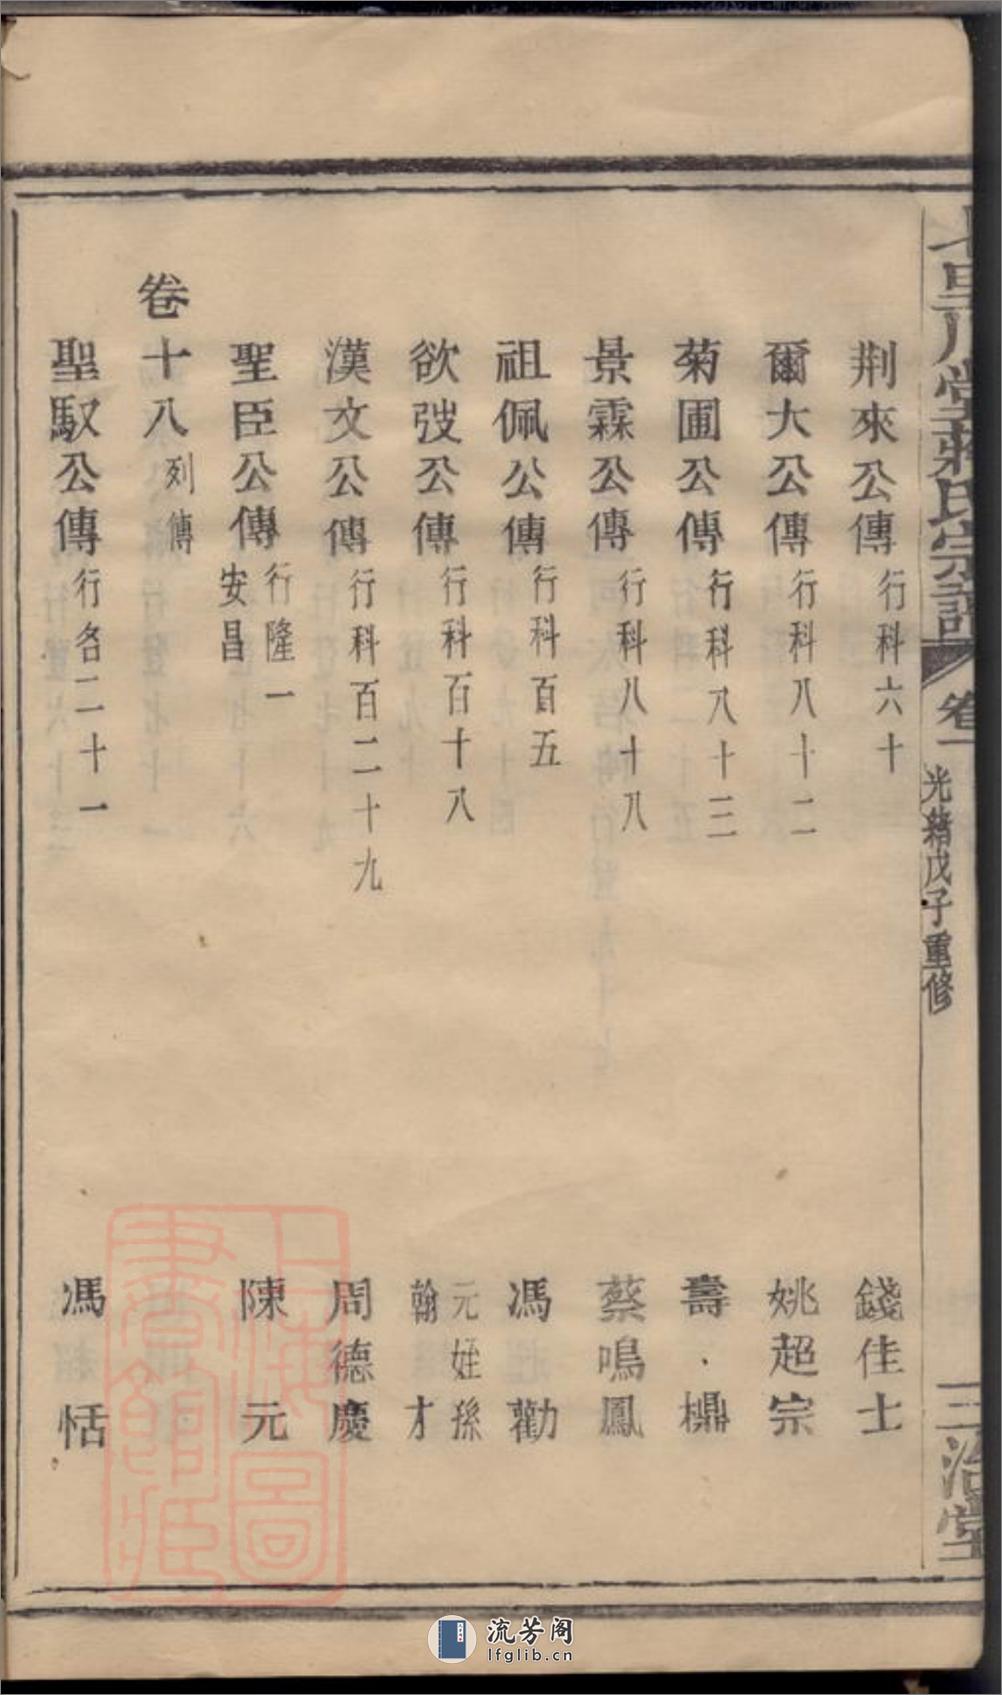 七里八堂蔣氏宗譜 卷一 光緒戊子重修 三治堂
荆來公傳 行科六十 錢佳士
爾大公傳 行科八十二 姚超宗
菊圃公傳 行科八十三 壽
景霖公傳 行科八十八 蔡鳴鳳
祖佩公傳 行科百五 馮勸
欲弢公傳 行科百十八 元姪孫翰才
漢文公傳 行科百二十九 周德慶
聖臣公傳 行隆一安昌 陳元
卷十八列傳
聖馭公傳 行名二十一 馮恬
上海圖書館藏
流芳阁
lfglib.cn